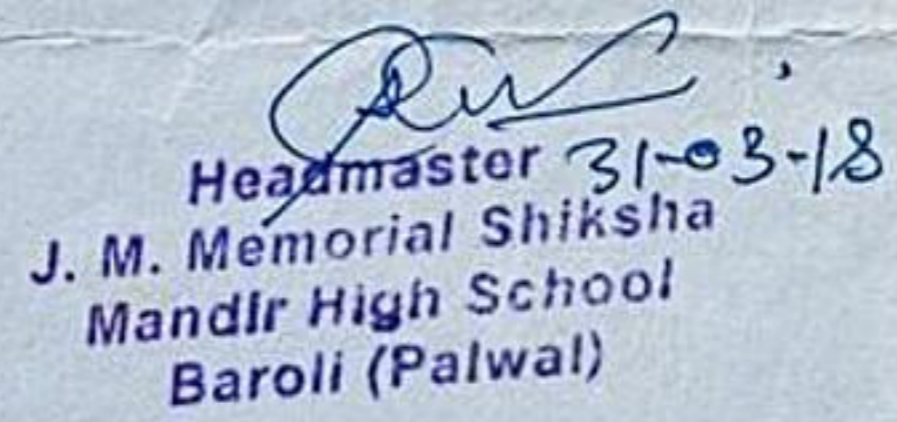 Headmaster 31-03-18
J. M. Memorial Shiksha
Mandir High School
Baroli (Palwal)